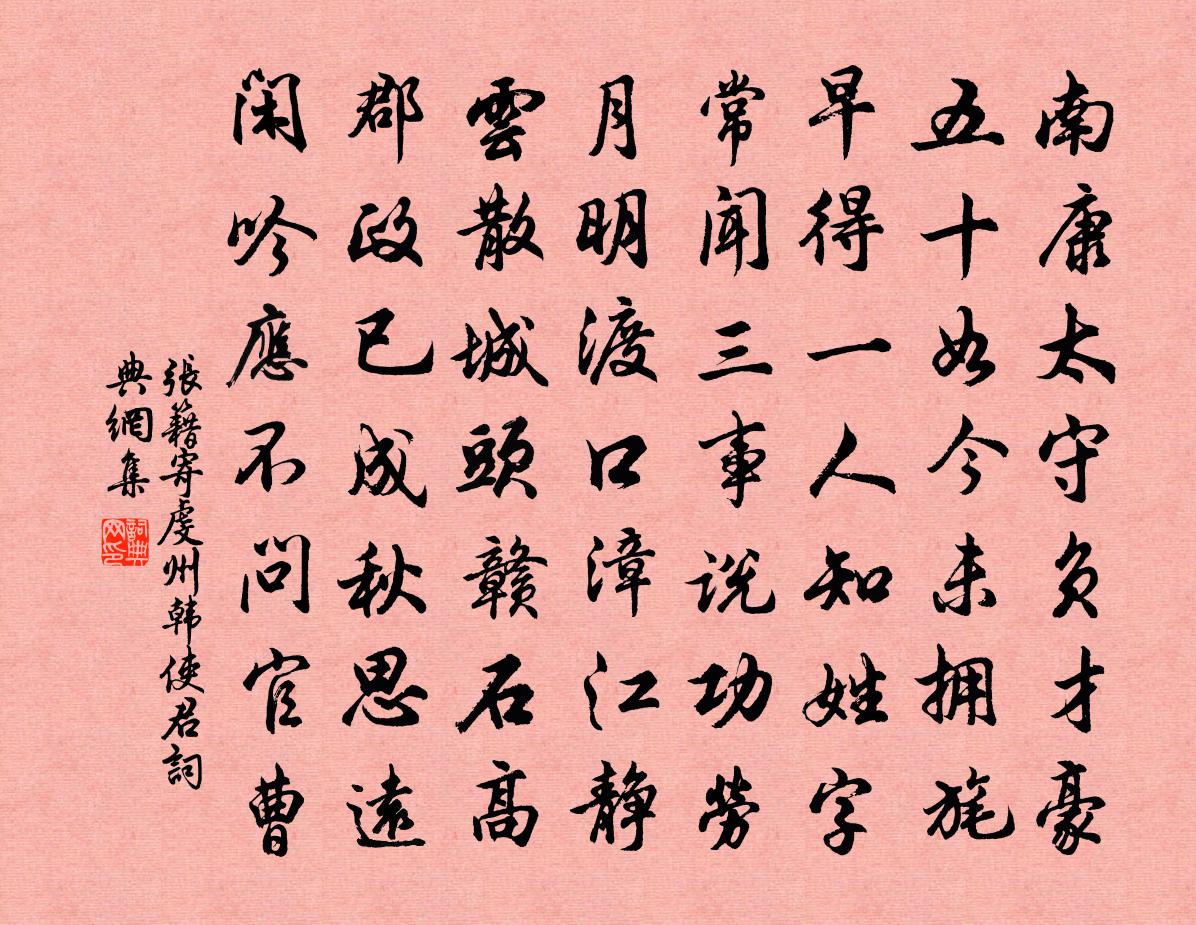 南康太守负才豪
五十如今未拥旄
早得一人知姓字
常闻三事説功勞
月明渡口漳江静
雲散城頭赣石高
郡政已成秋思遠
闲吟應不問官曹
張籍寄虔州韩使君詞
典網集
詞典
网印